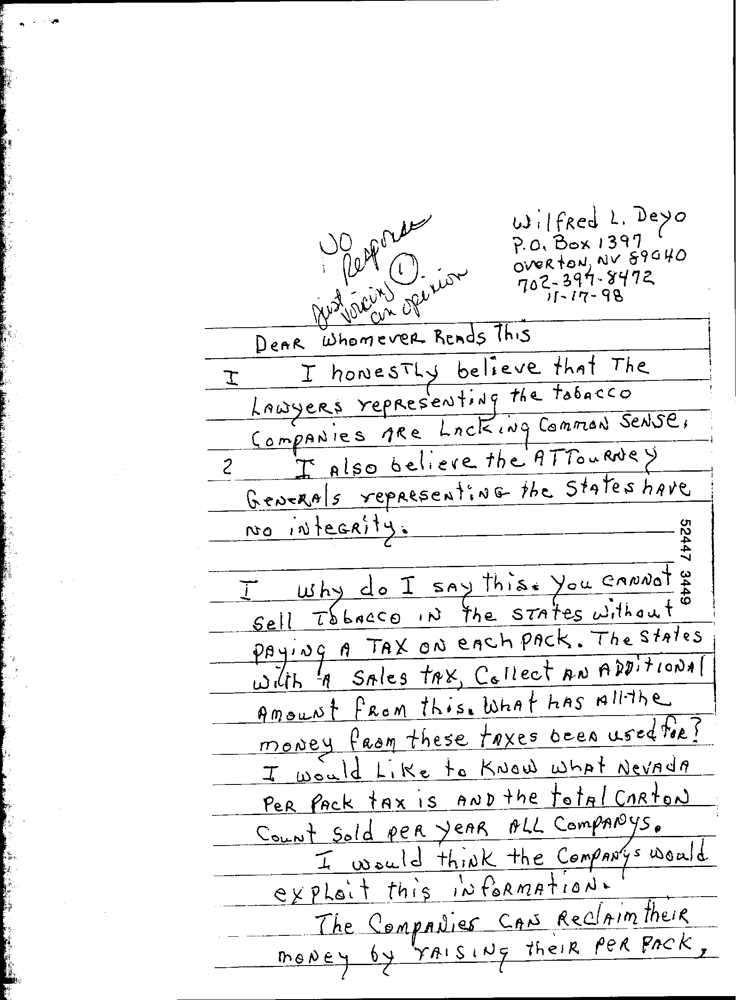 No
Response
Just
voicing
an opinion
1
Wilfred L. Deyo
P.O. Box 1397
Overton, NV 89040
702-397-8472
11-17-98
Dear Whomever Reads This
I I honestly believe that The
Lawyers representing the tobacco
Companies Are Lacking Common Sense.
2 I Also believe the ATTourney
Generals representing the States have
No integrity.
I Why do I say this. You cannot
Sell Tobacco in the states without
paying A Tax on each pack. The States
with A Sales tax, Collect an Additional
Amount from this. What has All the
money from these taxes been used for?
I would Like to Know what Nevada
Per Pack tax is and the total Carton
Count Sold per year ALL Companys.
I would think the Companys would
exploit this information.
The Companies can Reclaim their
money by raising their per pack,
52447 3449